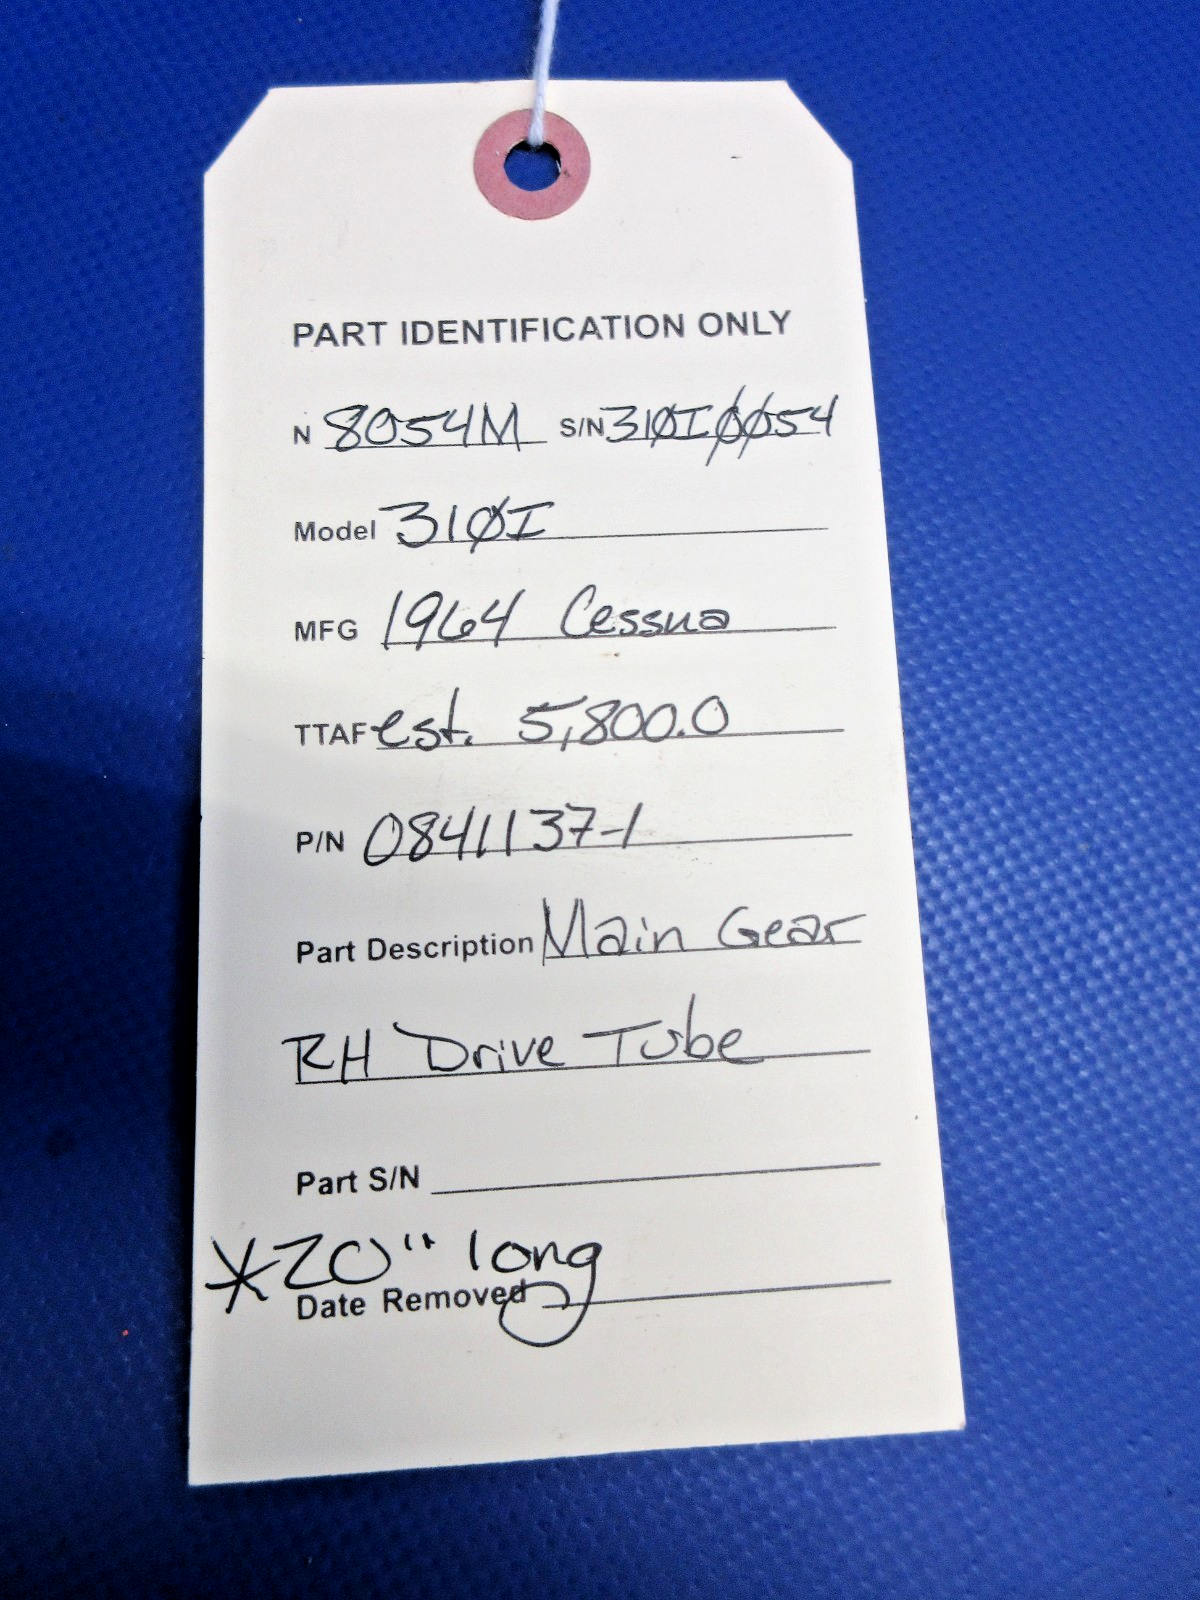 PART IDENTIFICATION ONLY
N 8054M S/N 310I0054
Model 310I
MFG 1964 Cessna
TTAF est. 5,800.0
P/N 0841137-1
Part Description Main Gear
RH Drive Tube
Part S/N
*20" long
Date Removed